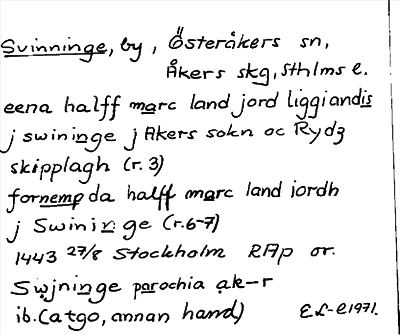 Svinninge, by, Österåkers sn,
Åkers skg, Sthlms l.
eena halff marc land jord liggiandis
j swininge j Akers sokn oc Rydz
skipplagh (r. 3)
fornempda halff marc land iordh
j Swininge (r. 6-7)
1443 27/8 Stockholm RAp or.
Swjninge parochia ak-r
ib. (atgo, annan hand)
E.L-e 1971.